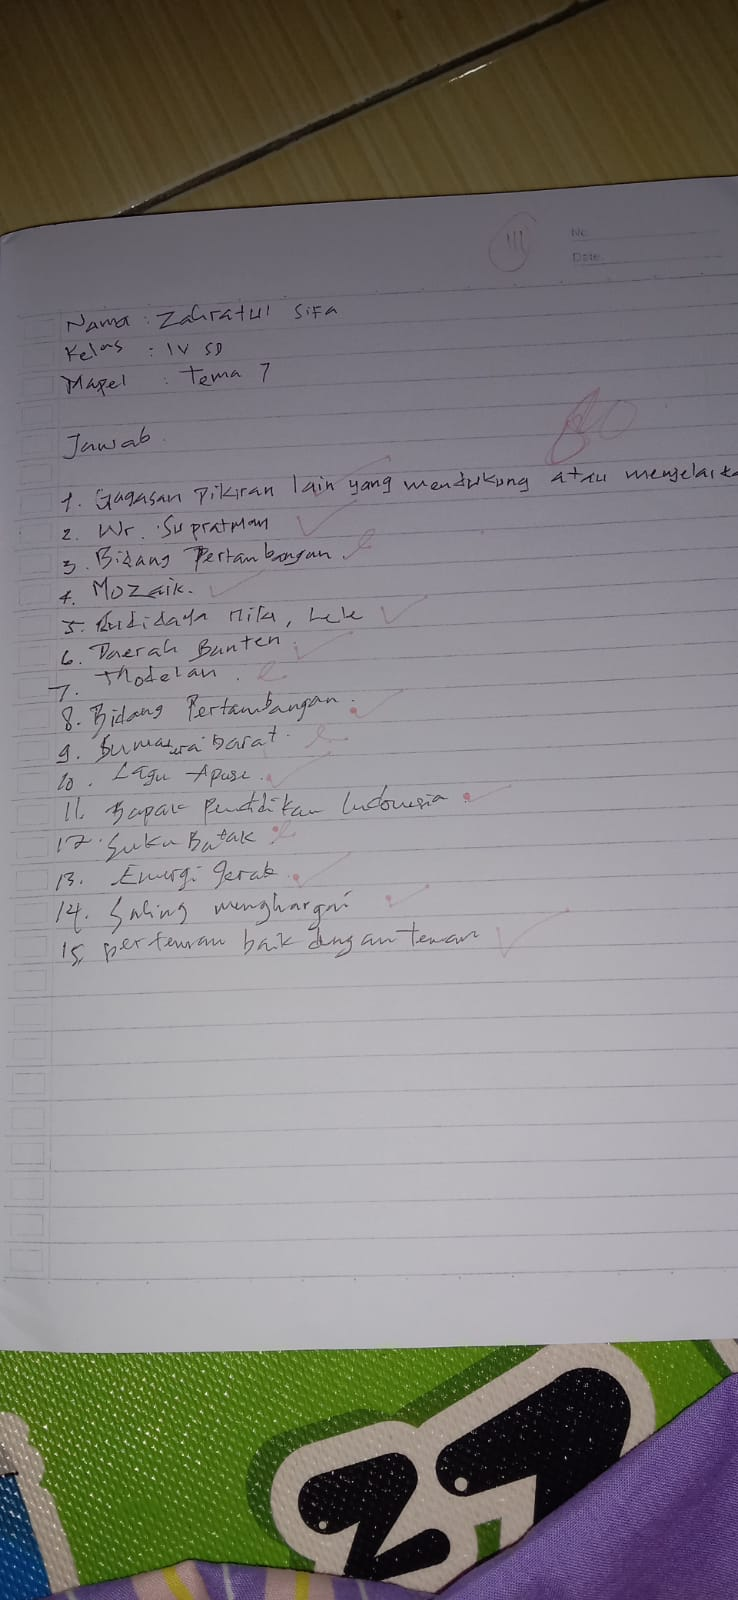 No
Date
Nama : Zahratul Sifa
Kelas : IV SD
Mapel : Tema 7
Jawab
80
1. Gagasan Pikiran lain yang mendukung atau menjelaska
2. Wr. Supratman
3. Bidang Pertambangan
4. Mozaik.
5. Budidaya nila, Lele
6. Daerah Banten
7. Modelan.
8. Bidang Pertambangan.
9. Sumatera barat.
10. Lagu Apuse.
11. Bapak Pendidikan Indonesia
12. Suku Batak
13. Energi gerak
14. Saling menghargai
15. berteman baik dengan teman